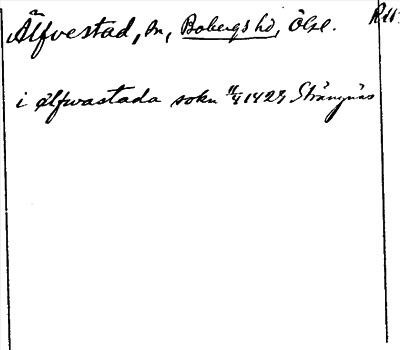 Älfvestad, sn, Bobergs hd, Ögl.
i ælfwastada sokn 11/4 1423 Strängnäs